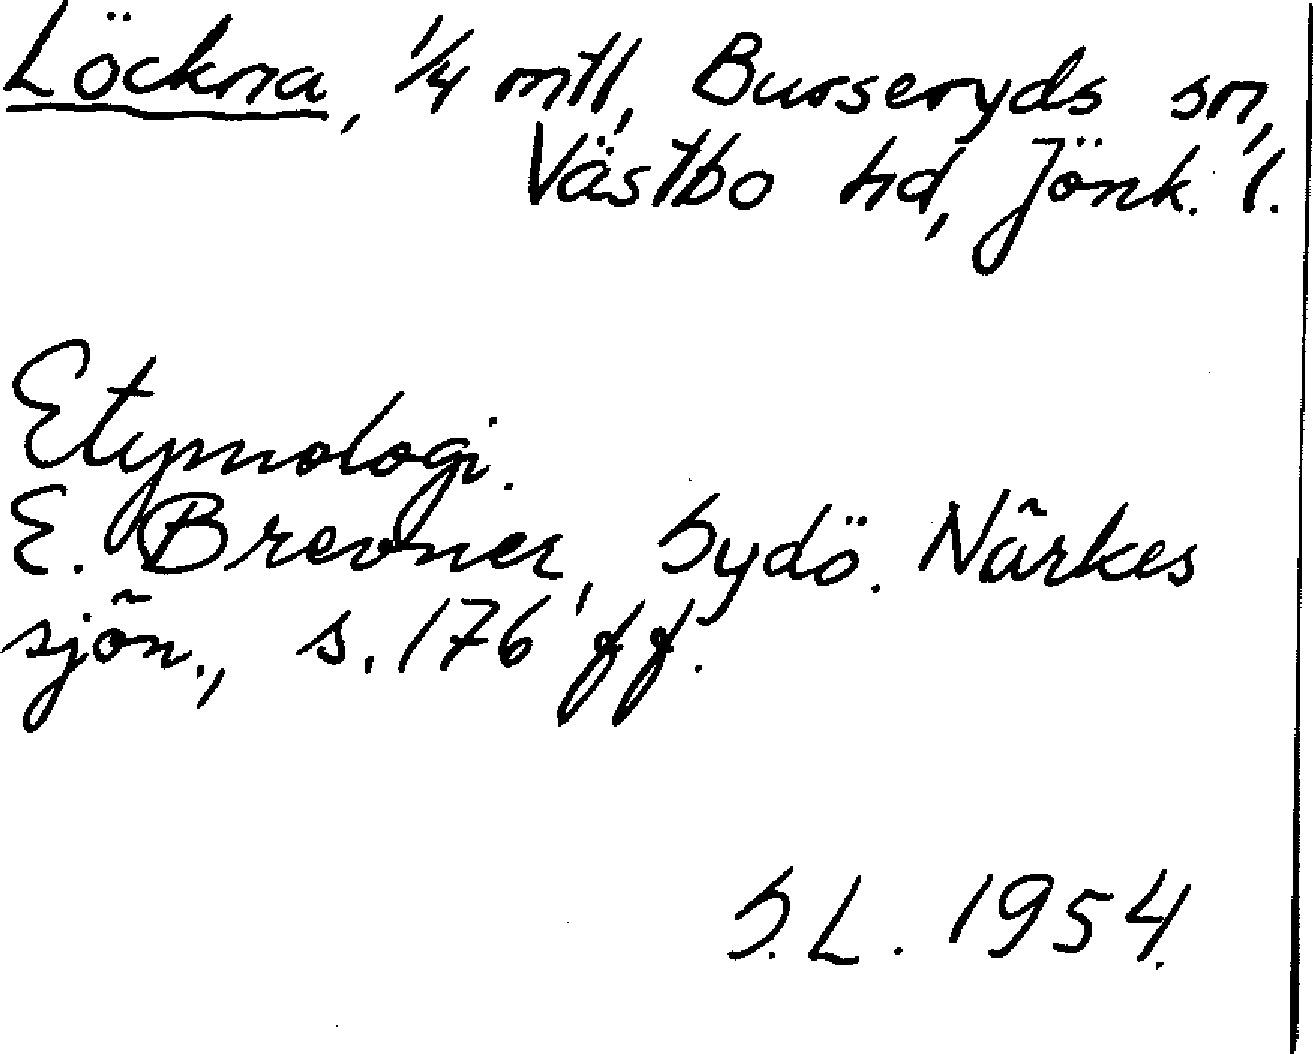 Löckna, 1/4 mtl, Burseryds sn,
Västbo hd, Jönk. l.
Etymologi.
E. Brevner, Sydö. Närkes
sjön., s. 176 ff.
S.L. 1954.